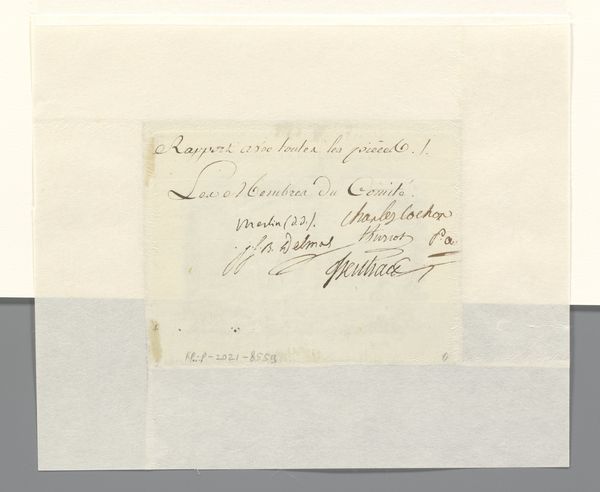 Rapport avec toutes les pièces. /.
Les Membres du Comité.
Merlin (d.d). Charles Cochon
J. f. B. Delmas Thuriot
RP-P-2021-8559